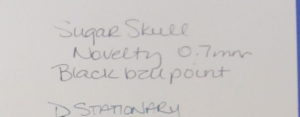 Sugar Skull
Novelty 0.7mm
Black ball point
D STATIONARY